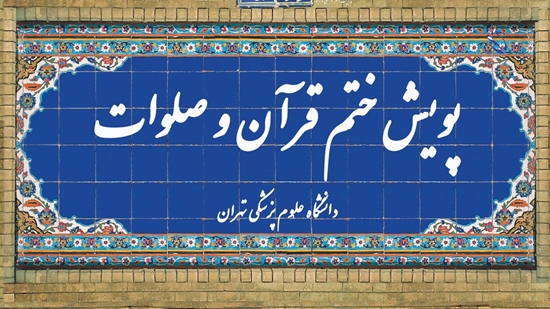 پویش ختم قرآن و صلوات
دانشگاه علوم پزشکی تهران